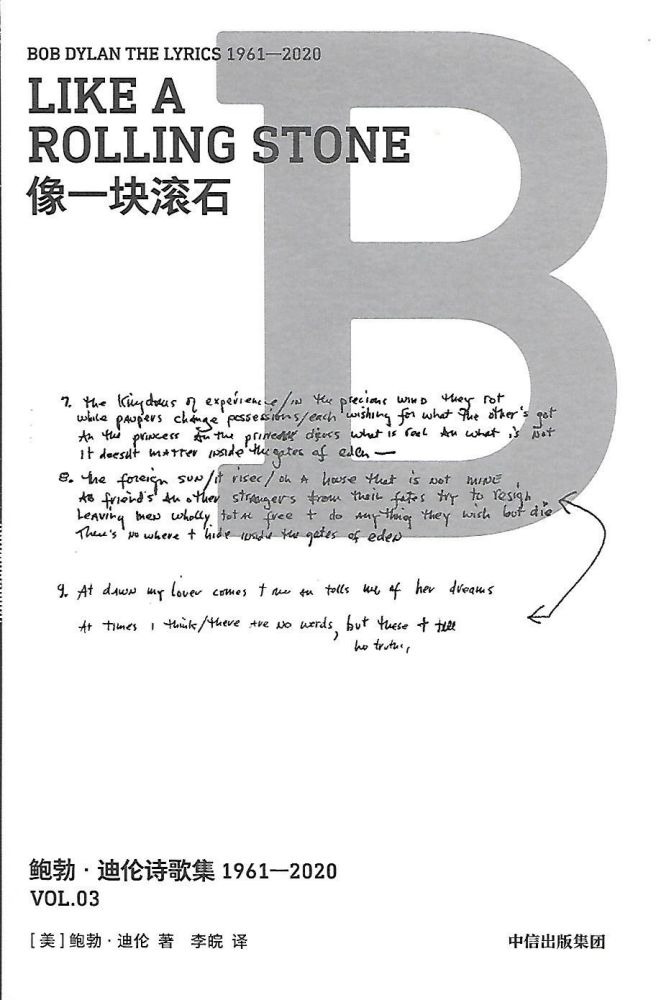 BOB DYLAN THE LYRICS 1961—2020
LIKE A
ROLLING STONE
像一块滚石
7. the kingdoms of experience/in the precious wind they rot
while paupers change possessions/each wishing for what the other's got
An the princess An the prince discuss what is real An what is not
It doesnt matter inside the gates of eden —
8. the foreign sun/it rises/on A house that is not mine
As friend's An other strangers from their fates try to resign
Leaving men wholly total free t do anything they wish but die
There's no where t hide inside the gates of eden
9. At dawn my lover comes t me an tells me of her dreams
At times i think/there are no words, but these t tell
no truths,
鲍勃·迪伦诗歌集 1961—2020
VOL.03
[美]鲍勃·迪伦 著 李皖 译
中信出版集团